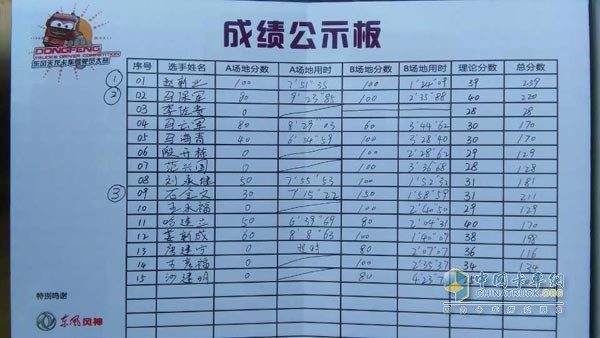 DONGFENG
TRUCKS DRIVER COMPETITION
东风天龙卡车驾驶员大赛
成绩公示板
序号 选手姓名 A场地分数 A场地用时 B场地分数 B场地用时 理论分数 总分数
① 01 赵新业 100 7'51"35 100 1'24"09 39 239
② 02 马保军 80 9'23"85 100 2'35"88 40 220
03 0 28 28
04 马云军 80 8'29"03 60 3'44"62 30 170
05 马海青 40 6'34"59 100 3'28"40 30 170
06 0 100 2'28"62 29 129
07 0 100 3'36"68 28 128
08 刘永继 50 7'55"53 100 1'52"32 31 181
③ 09 石金文 30 7'15"22 150 1'58"59 31 211
10 王永福 0 100 2'40"50 29 129
11 哈建立 50 6'39"69 80 2'04"31 40 170
12 姜新成 60 8'8"63 100 1'40"07 38 198
13 0 超时 80 2'07"07 36 116
14 0 100 2'35"37 34 134
15 沙建明 0 80
特别鸣谢
东风风神
中国卡车网
CHINATRUCK.ORG